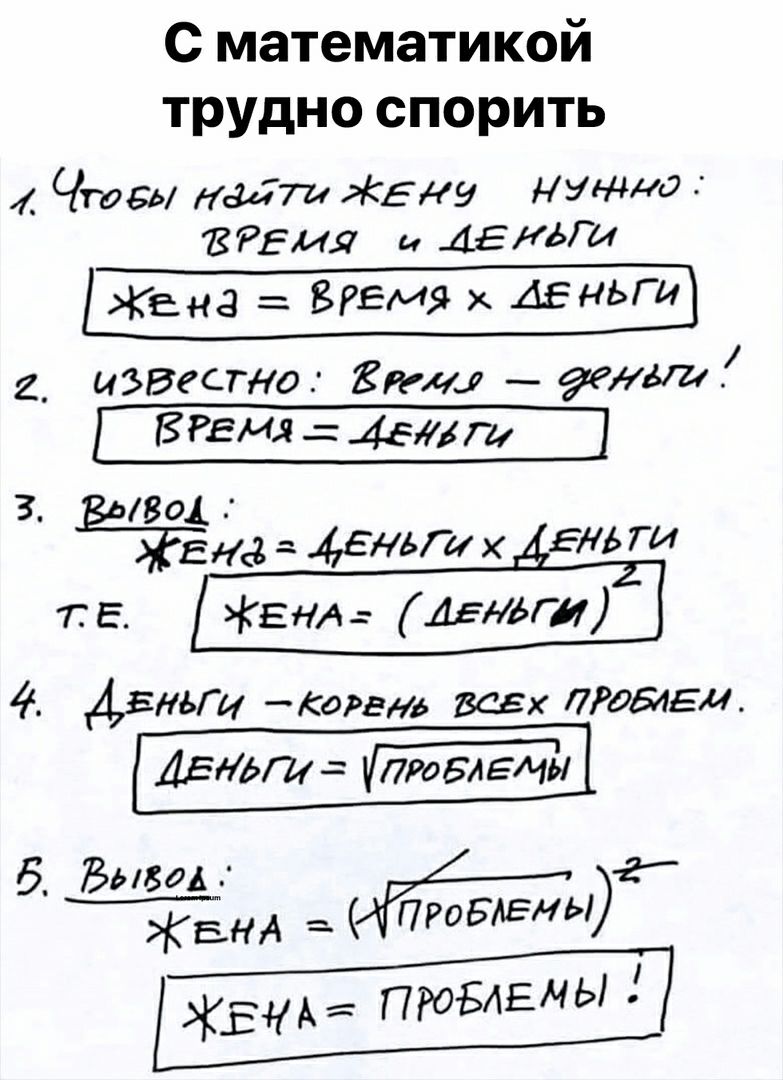 С математикой
трудно спорить
1. Чтобы найти жену нужно:
время и деньги
Жена = время x деньги
2. известно: Время — деньги!
Время = деньги
3. Вывод:
Жена = деньги x деньги
т.е. Жена = (деньги)²
4. Деньги – корень всех проблем.
Деньги = √проблемы
5. Вывод:
Lorem ipsum
Жена = (√проблемы)²
Жена = проблемы!